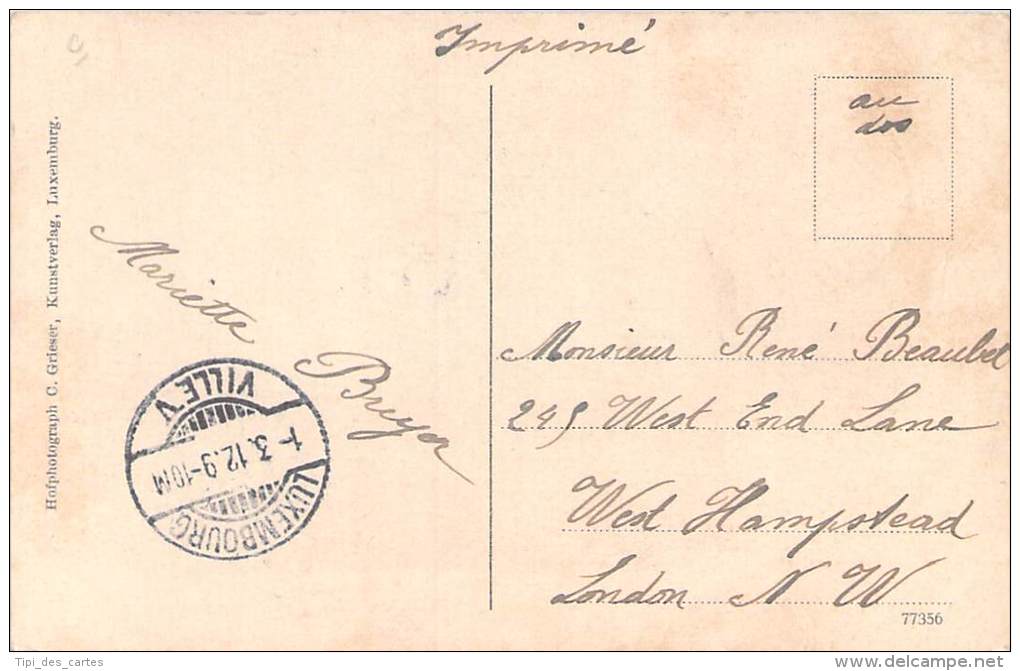 Imprimé
au
dos
Hofphotograph C. Grieser, Kunstverlag, Luxemburg.
Mariette
Monsieur René Beaubel
245 West End Lane
West Hampstead
London N W
LUXEMBOURG
1-3.12.9-10M
VILLE V
77356
Tipi_des_cartes
delcampe.net